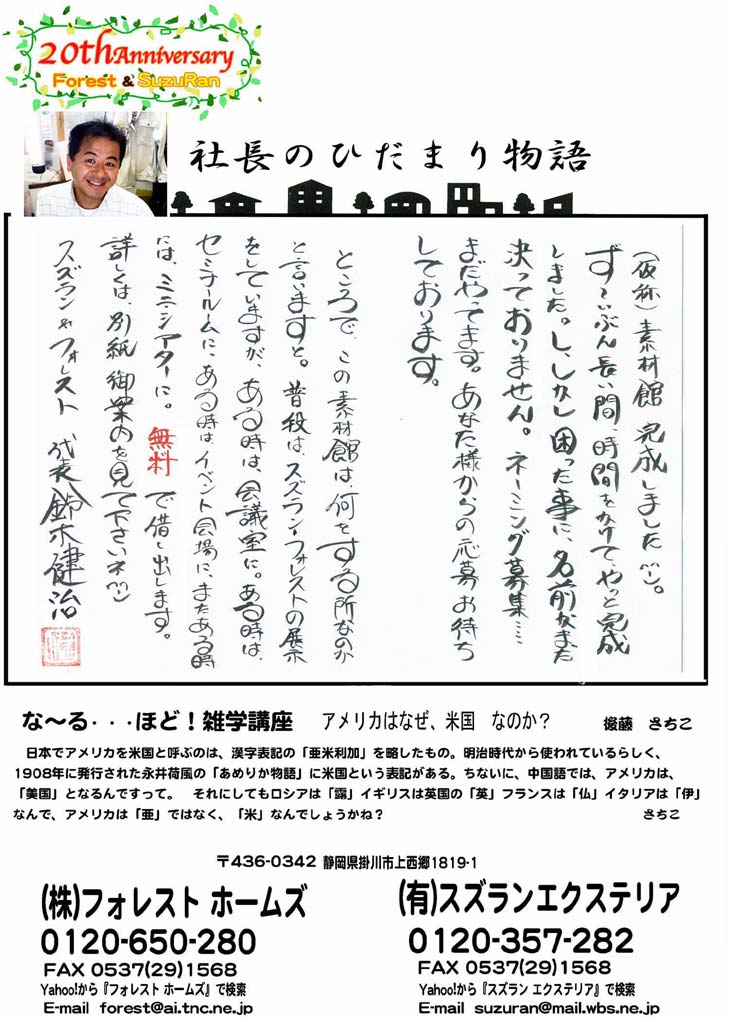 20th Anniversary
Forest & SuzuRan
社長のひだまり物語
(仮称)素材館 完成しました(^^)。
ず〜いぶん長い間、時間をかけて、やっと完成
しました。し、しかし困った事に、名前がまだ
決っておりません。ネーミング募集……
まだやってます。あなた様からの応募お待ち
しております。
ところで、この素材館は、何をする所なのか
と言いますと。普段は、スズラン・フォレストの展示
をしていますが、ある時は、会議室に。ある時は、
セミナールームに、ある時は、イベント会場に、またある時
には、ミニシアターに。無料で借し出します。
詳しくは、別紙御案内を見て下さいネ(^^)
スズラン&フォレスト 代表 鈴木健治
な〜る・・・ほど!雑学講座 アメリカはなぜ、米国 なのか? 後藤 さちこ
日本でアメリカを米国と呼ぶのは、漢字表記の「亜米利加」を略したもの。明治時代から使われているらしく、
1908年に発行された永井荷風の「あめりか物語」に米国という表記がある。ちないに、中国語では、アメリカは、
「美国」となるんですって。 それにしてもロシアは「露」イギリスは英国の「英」フランスは「仏」イタリアは「伊」
なんで、アメリカは「亜」ではなく、「米」なんでしょうかね? さちこ
〒436-0342 静岡県掛川市上西郷1819-1
(株)フォレスト ホームズ
0120-650-280
FAX 0537(29)1568
Yahoo!から『フォレスト ホームズ』で検索
E-mail forest@ai.tnc.ne.jp
(有)スズランエクステリア
0120-357-282
FAX 0537(29)1568
Yahoo!から『スズラン エクステリア』で検索
E-mail suzuran@mail.wbs.ne.jp